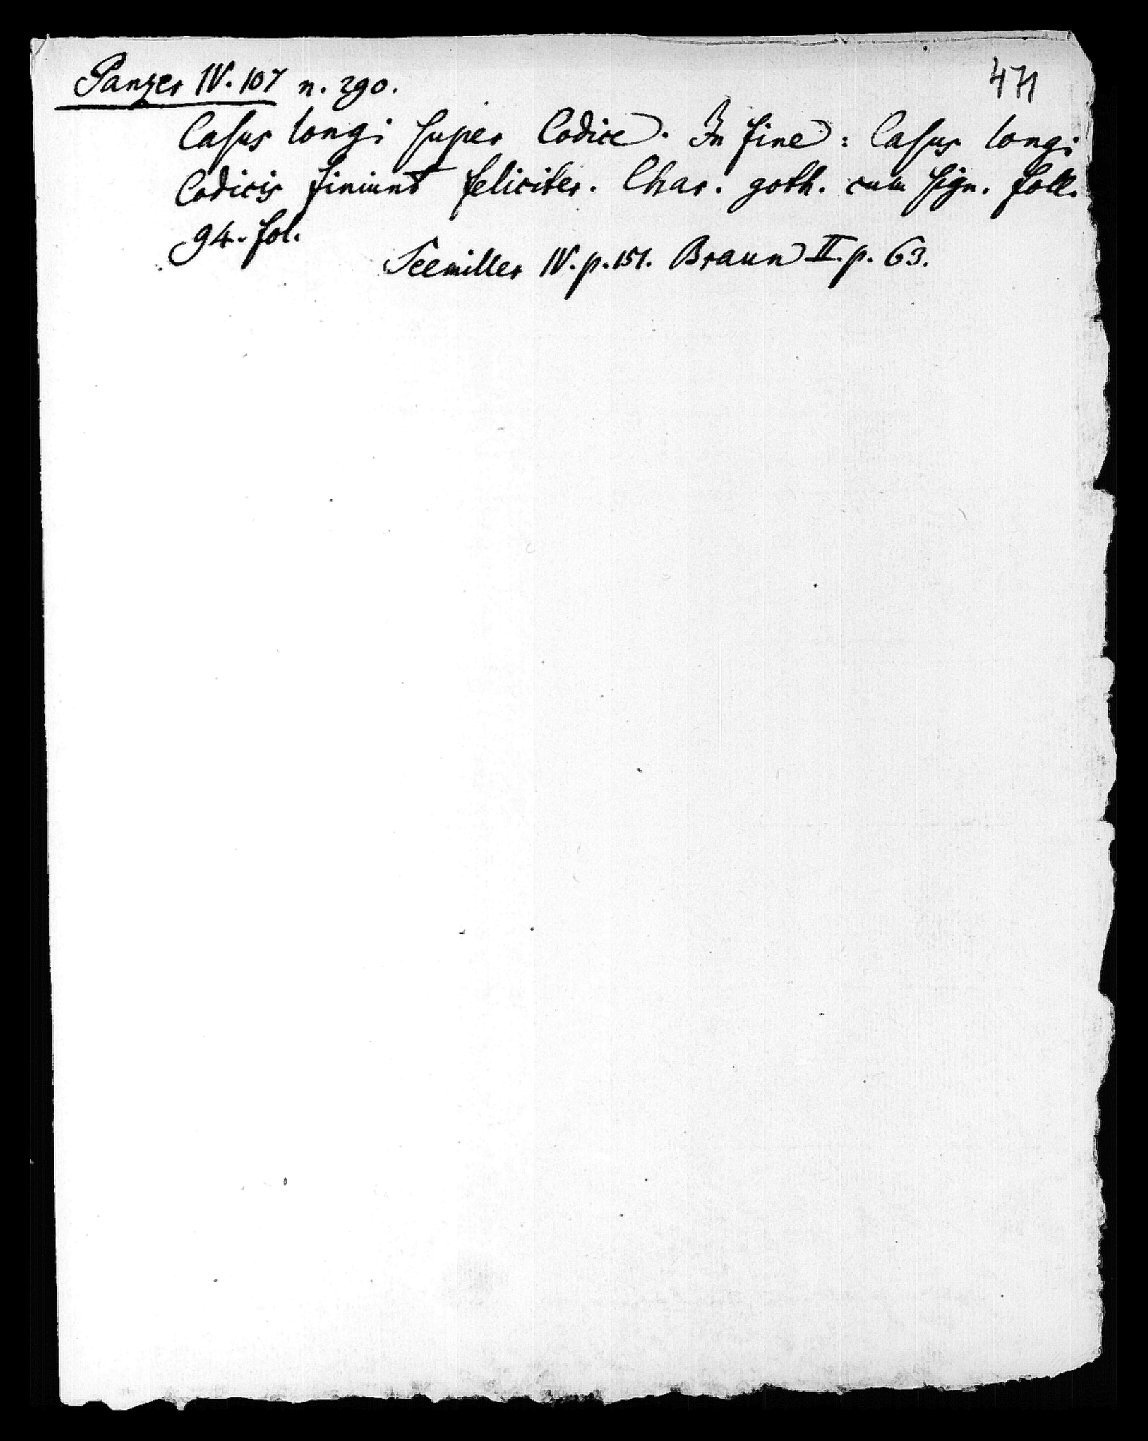 Panzer IV. 107 n. 290. 471
Casus longi super Codice. In fine: Casus longi
Codicis finiunt feliciter. Char. goth. cum sign. foll.
94. fol.
Seemiller IV. p. 151. Braun II. p. 63.